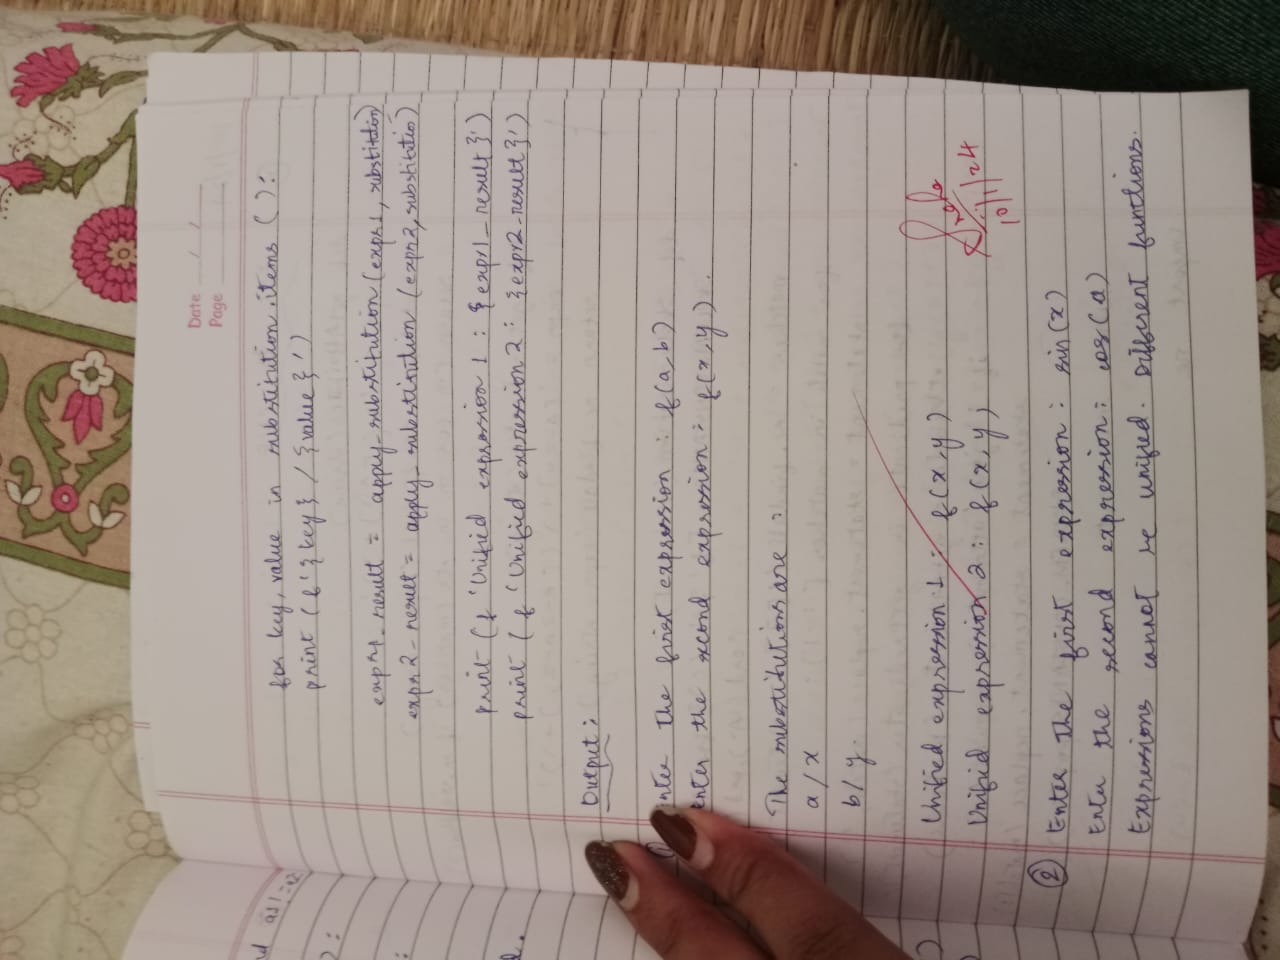 Date __/__/__
Page
for key, value in substitution.items ( ):
print ( f' { key } / { value } ' )
expr1_result = apply_substitution (expr1, substitution)
expr2_result = apply_substitution (expr2, substitution)
print ( f 'Unified expression 1 : { expr1_result } ' )
print ( f 'Unified expression 2 : { expr2_result } ' )
Output :
nter the first expression : f(a, b)
enter the second expression : f(x, y).
The substitutions are :
a / x
b / y.
Unified expression 1 : f(x, y)
Unified expression 2 : f(x, y)
10/1/24
② Enter the first expression : sin(x)
Enter the second expression : cos(a)
Expressions cannot be unified. Different functions.